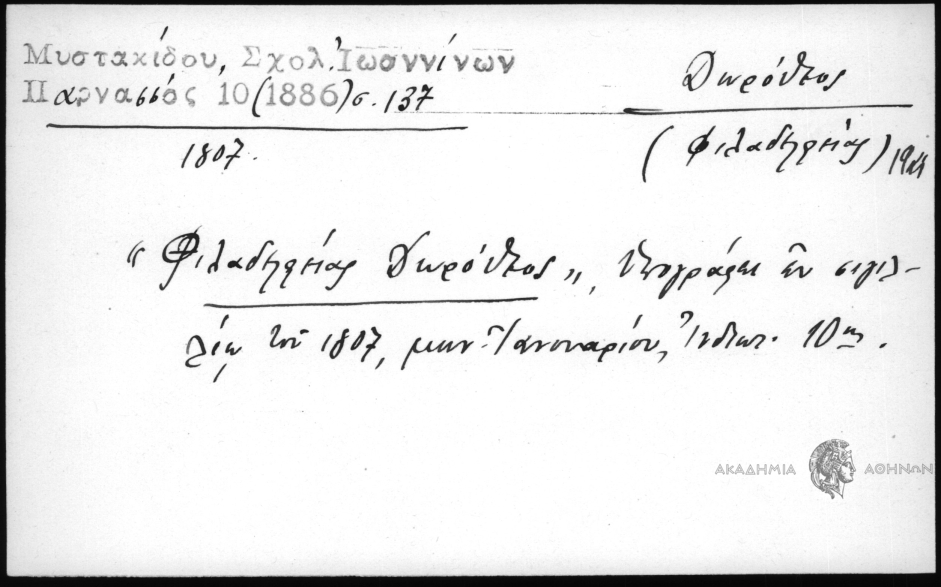 Μυστακίδου, Σχολ. Ἰωαννίνων
Παρνασσός 10 (1886) σ. 137
Δωρόθεος
1807.
(Φιλαδελφείας)
"Φιλαδελφείας Δωρόθεος", ὑπογράφει ἐν σιγιλ-
λίῳ τοῦ 1807, μην. Ἰανουαρίου, Ἰνδικτ. 10ης.
ΑΚΑΔΗΜΙΑ ΑΘΗΝΩΝ